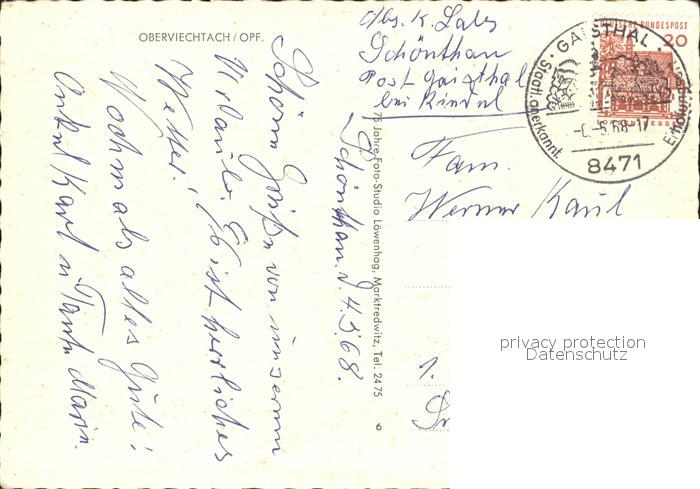 OBERVIECHTACH / OPF.
Schönthan. d. 4.5.68.
Schöne Grüße von unserem
Urlaub. Es ist herrliches
Wetter!
Nochmals alles Gute!
Onkel Karl u Tante Marie.
75 Jahre Foto-Studio Löwenhag, Marktredwitz, Tel. 2475
6
Abs. K.
Schönthan
Post Gaisthal
bei
DEUTSCHE BUNDESPOST
20
GAISTHAL
Staatl. anerkannt.
-6.-5.68-17
8471
Fam.
Werner Kaul
1.
privacy protection
Datenschutz